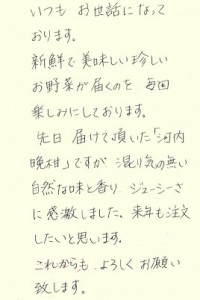 いつも お世話になって
おります。
新鮮で美味しい珍しい
お野菜が届くのを 毎回
楽しみにしております。
先日 届けて頂いた「河内
晩柑」ですが 混り気の無い
自然な味と香り ジューシーさ
に感激しました。来年も注文
したいと思います。
これからも よろしくお願い
致します。